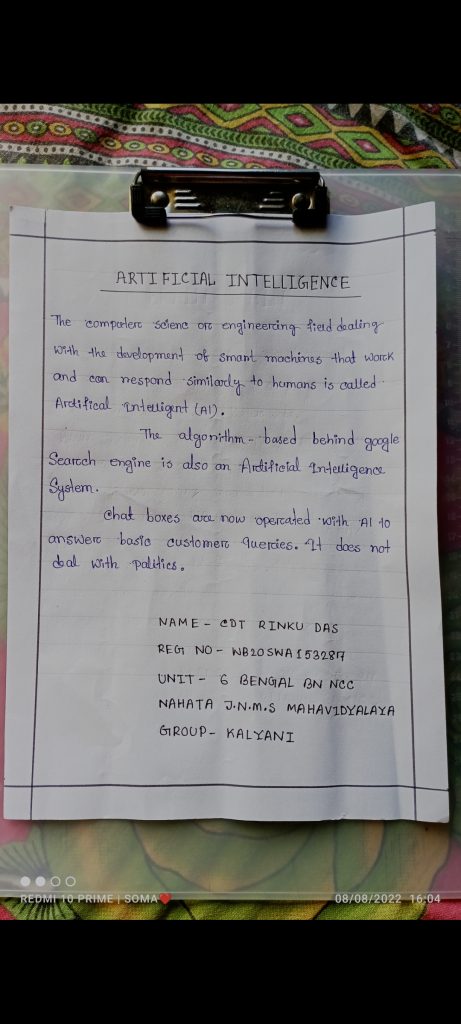 ARTIFICIAL INTELLIGENCE
The computerc scienc orc engineercing field dealing
with the development of smart machines that worck
and can respond similarly to humans is called
Artifical Intelligent (AI).
The algorithm - based behind google
Searcch engine is also an Artificial Intelligence
System.
Chat boxes are now opercated with AI to
answerc basic customerc quercies. It does not
deal with politics.
NAME - CDT RINKU DAS
REG NO - WB20SWA153287
UNIT - 6 BENGAL BN NCC
NAHATA J.N.M.S MAHAVIDYALAYA
GROUP - KALYANI
REDMI 10 PRIME | SOMA❤
08/08/2022 16:04